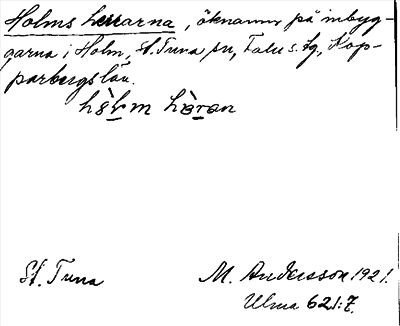 Holms herrarna, öknamn på inbyg-
garna i Holm, St. Tuna sn, Falu s. tg, Kop-
parbergs län.
hòlm hæ̀ran
St. Tuna M. Andersson 1921.
Ulma 621:7.